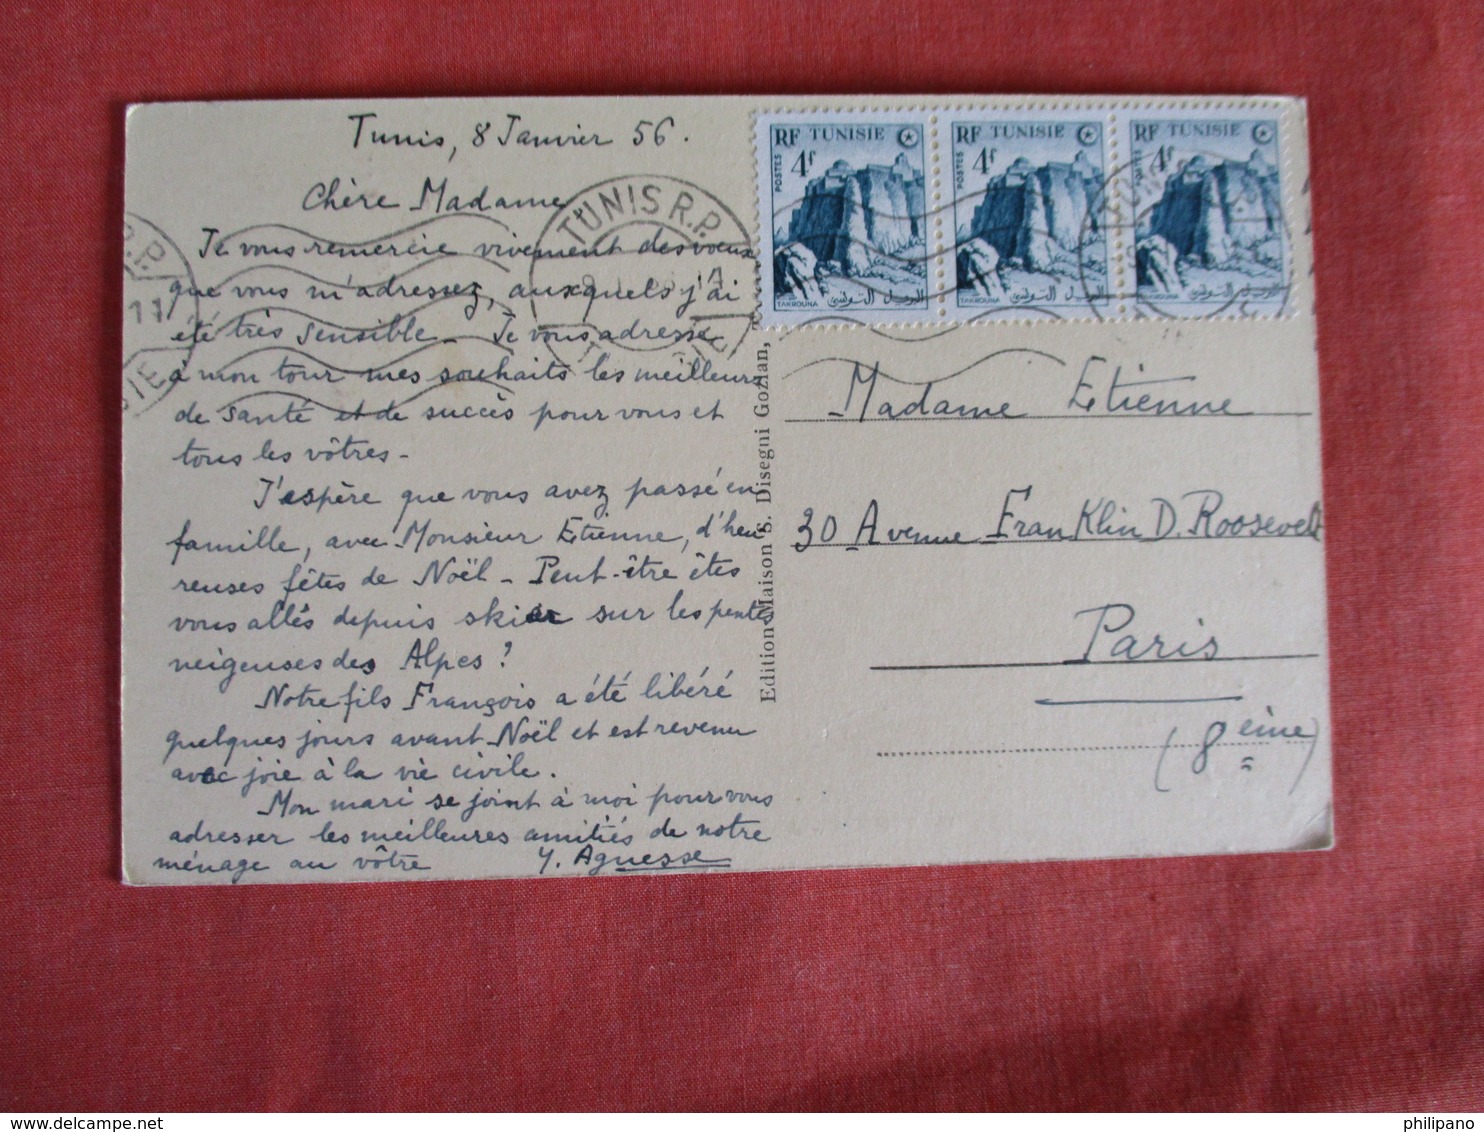 Tunis, 8 Janvier 56.
Chère Madame
Je vous remercie vivement des voeux
que vous m'adressez, auxquels j'ai
été très sensible_ Je vous adresse
à mon tour mes souhaits les meilleurs
de santé et de succès pour vous et
tous les vôtres_
J'espère que vous avez passé en
famille, avec Monsieur Etienne, d'heu-
reuses fêtes de Noël_ Peut-être êtes
vous allés depuis skier sur les pentes
neigeuses des Alpes?
Notre fils François a été libéré
quelques jours avant Noël et est revenu
avec joie à la vie civile.
Mon mari se joint à moi pour vous
adresser les meilleures amitiés de notre
ménage au vôtre Y. Agnesse
TUNIS R.P.
R.P
Edition Maison S. Disegni Gozlan,
RF TUNISIE
POSTES
4f
TAKROUNA
البريد التونسي
RF TUNISIE
POSTES
4f
TAKROUNA
البريد التونسي
RF TUNISIE
POSTES
4f
TAKROUNA
البريد التونسي
Madame Etienne
30 Avenue Franklin D. Roosevelt
Paris
(8ème)
philipano